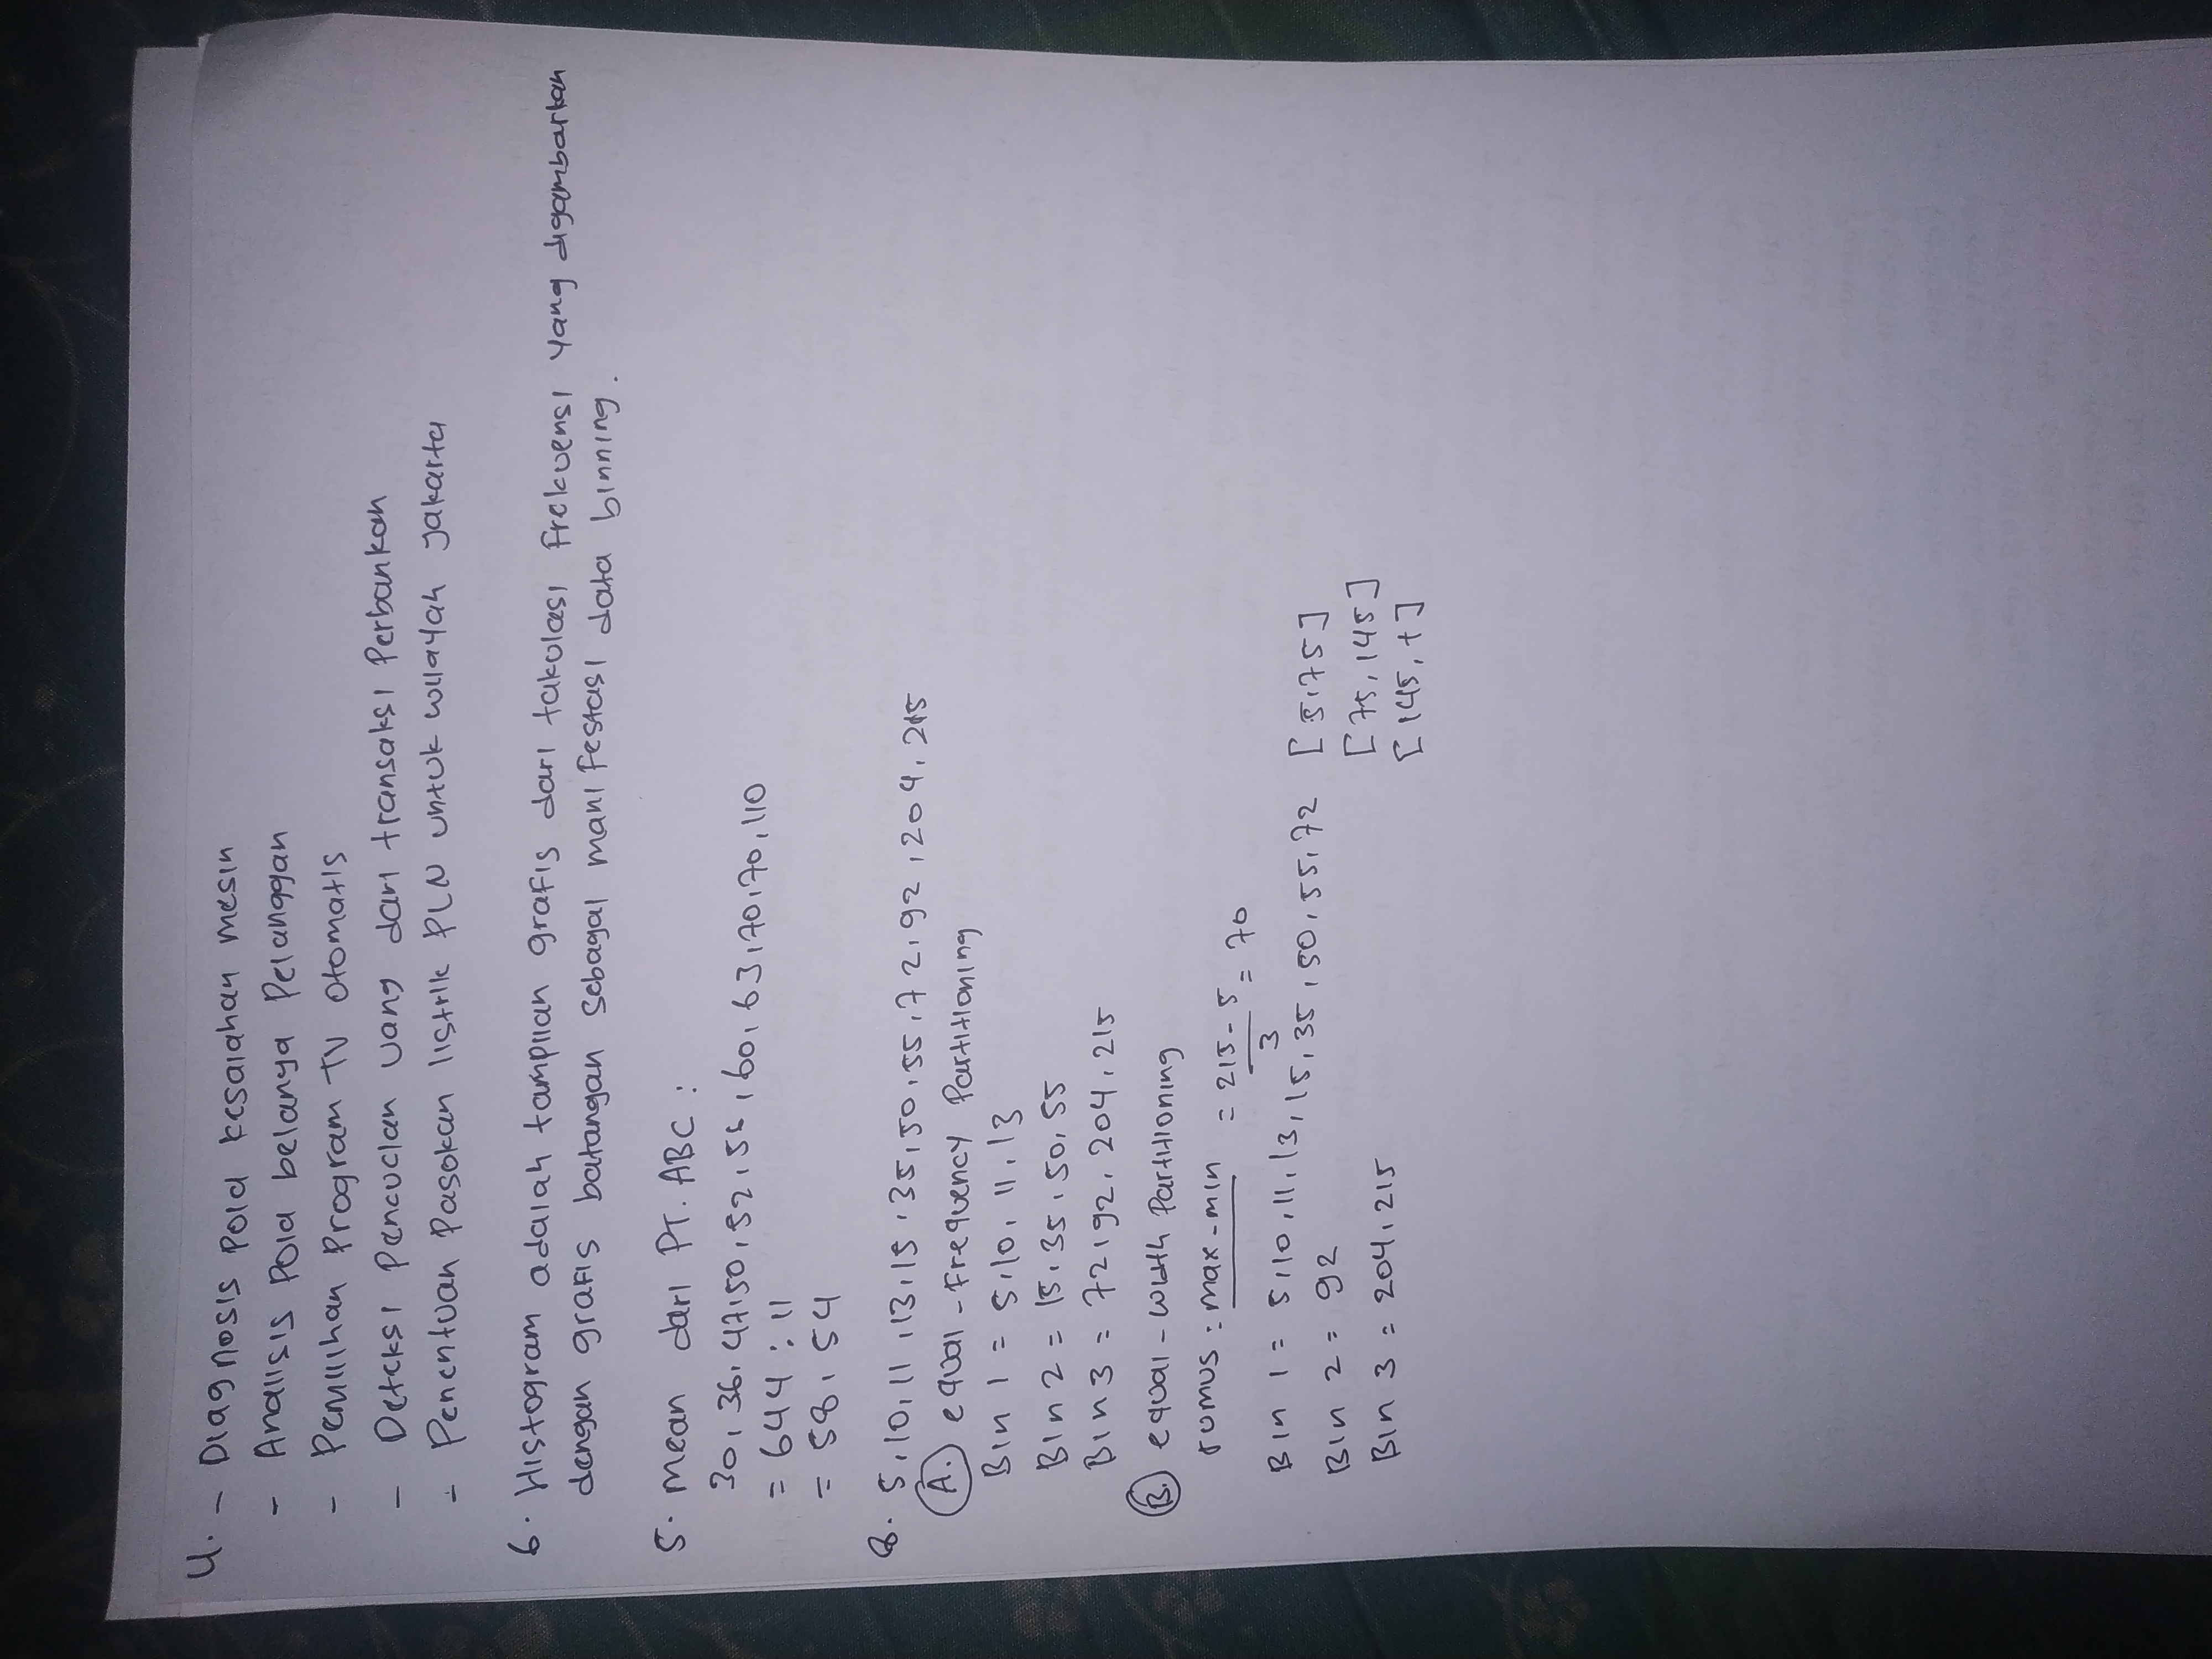 4. - Diagnosis Pola kesalahan mesin
- Analisis Pola belanja Pelanggan
- Pemilihan Program TV otomatis
- Deteksi Pencucian uang dari transaksi Perbankan
- Penentuan Pasokan listrik PLN untuk wilayah Jakarta
6. Histogram adalah tampilan grafis dari takulasi frekuensi yang digambarkan
dengan grafis batangan sebagai manifestasi data binning.
5. mean dari PT. ABC :
30, 36, 47, 50, 52, 56, 60, 63, 70, 70, 110
= 644 : 11
= 58,54
8. 5, 10, 11, 13, 15, 35, 50, 55, 72, 92, 204, 215
A. equal - Frequency Partitioning
Bin 1 = 5, 10, 11, 13
Bin 2 = 15, 35, 50, 55
Bin 3 = 72, 92, 204, 215
B. equal - width Partitioning
rumus : max - min = 215 - 5 = 70
3
Bin 1 = 5, 10, 11, 13, 15, 35, 50, 55, 72 [5,75]
Bin 2 = 92 [75, 145]
Bin 3 = 204, 215 [145, +]